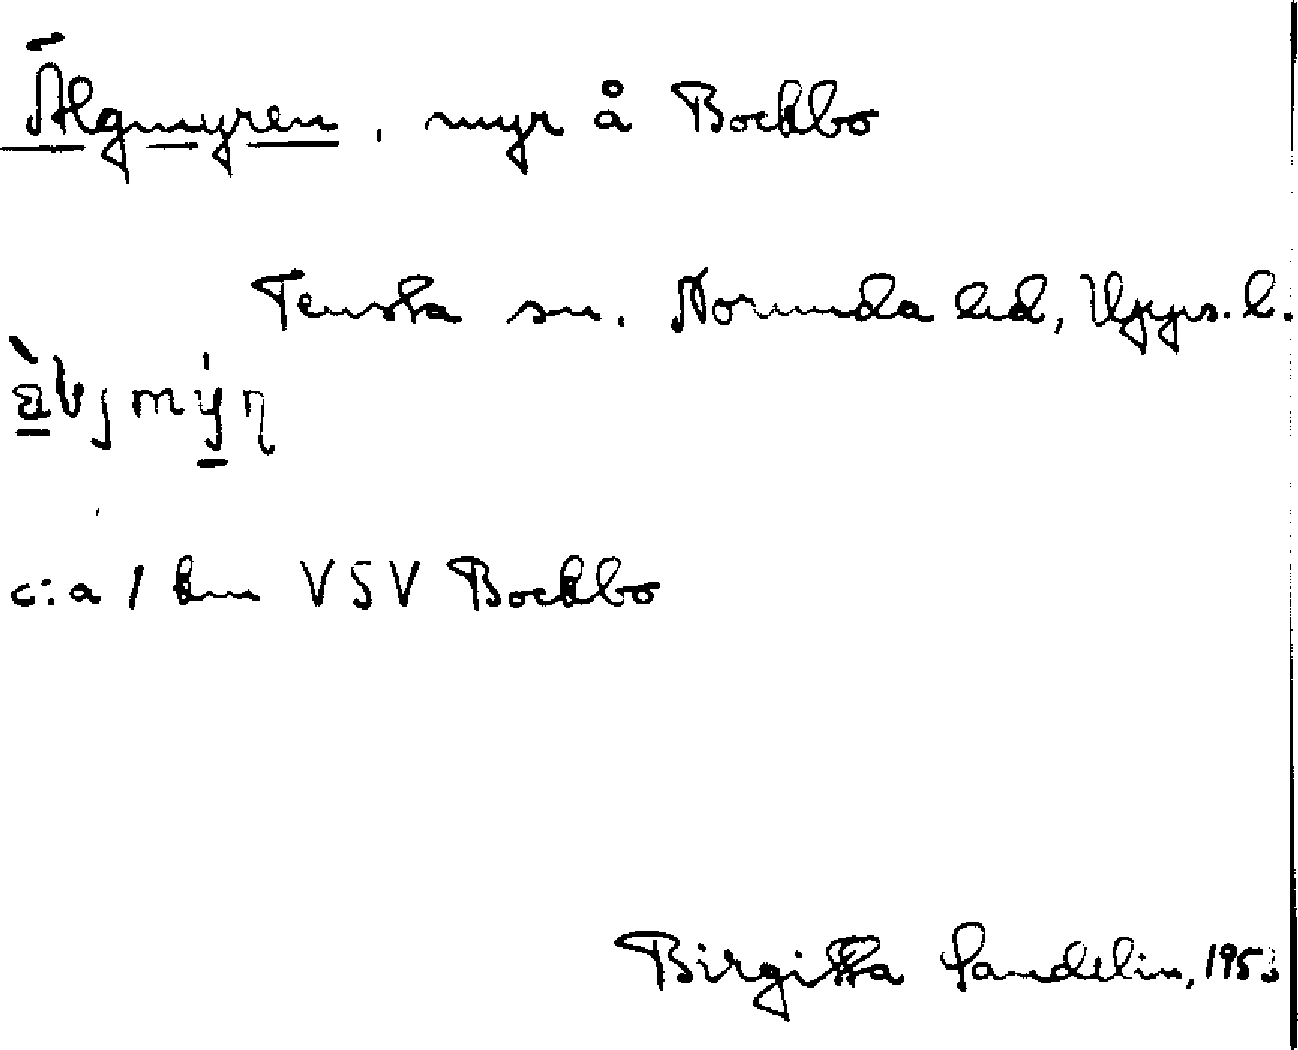 Älgmyren, myr å Bockbo
Tensta sn. Norunda hd, Upps. l.
c:a 1 km VSV Bockbo
Birgitta Sandelin,